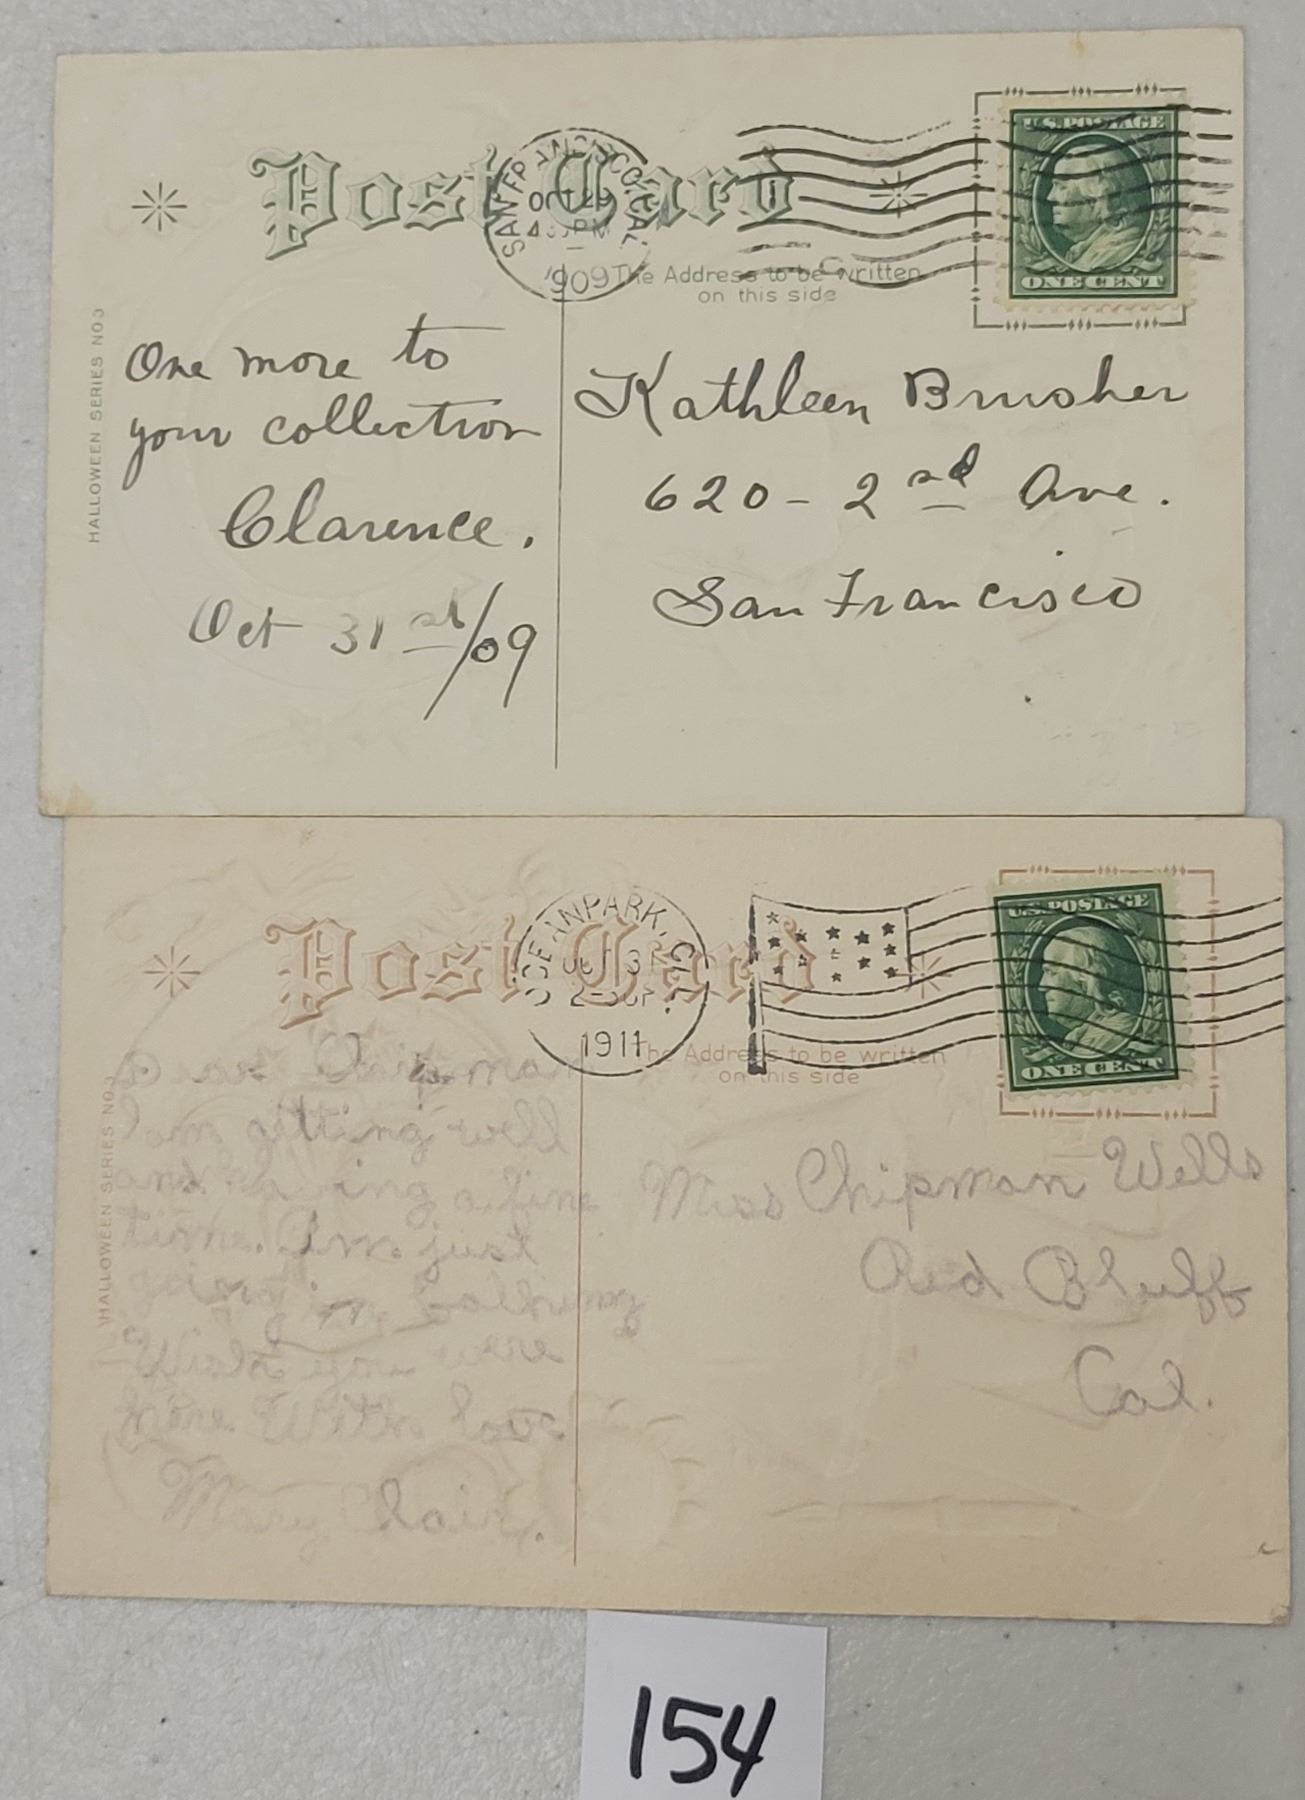 Post Card
SAN FRANCISCO, CAL.
OCT 29
4 30 PM
1909
U.S. POSTAGE
ONE CENT
The Address to be written
on this side
HALLOWEEN SERIES NO 3
One more to
your collection
Clarence.
Oct 31 st/09
Kathleen Brusher
620 - 2 nd Ave.
San Francisco
Post Card
OCEAN PARK, CAL.
1911
U.S. POSTAGE
ONE CENT
The Address to be written
on this side
HALLOWEEN SERIES NO 3
Dear Chipman
I am gitting well
and having a fine
time. I'm just
going in bathing
Wish you were
here With love
Mary Clair.
Miss Chipman Wells
Red Bluff
Cal.
154